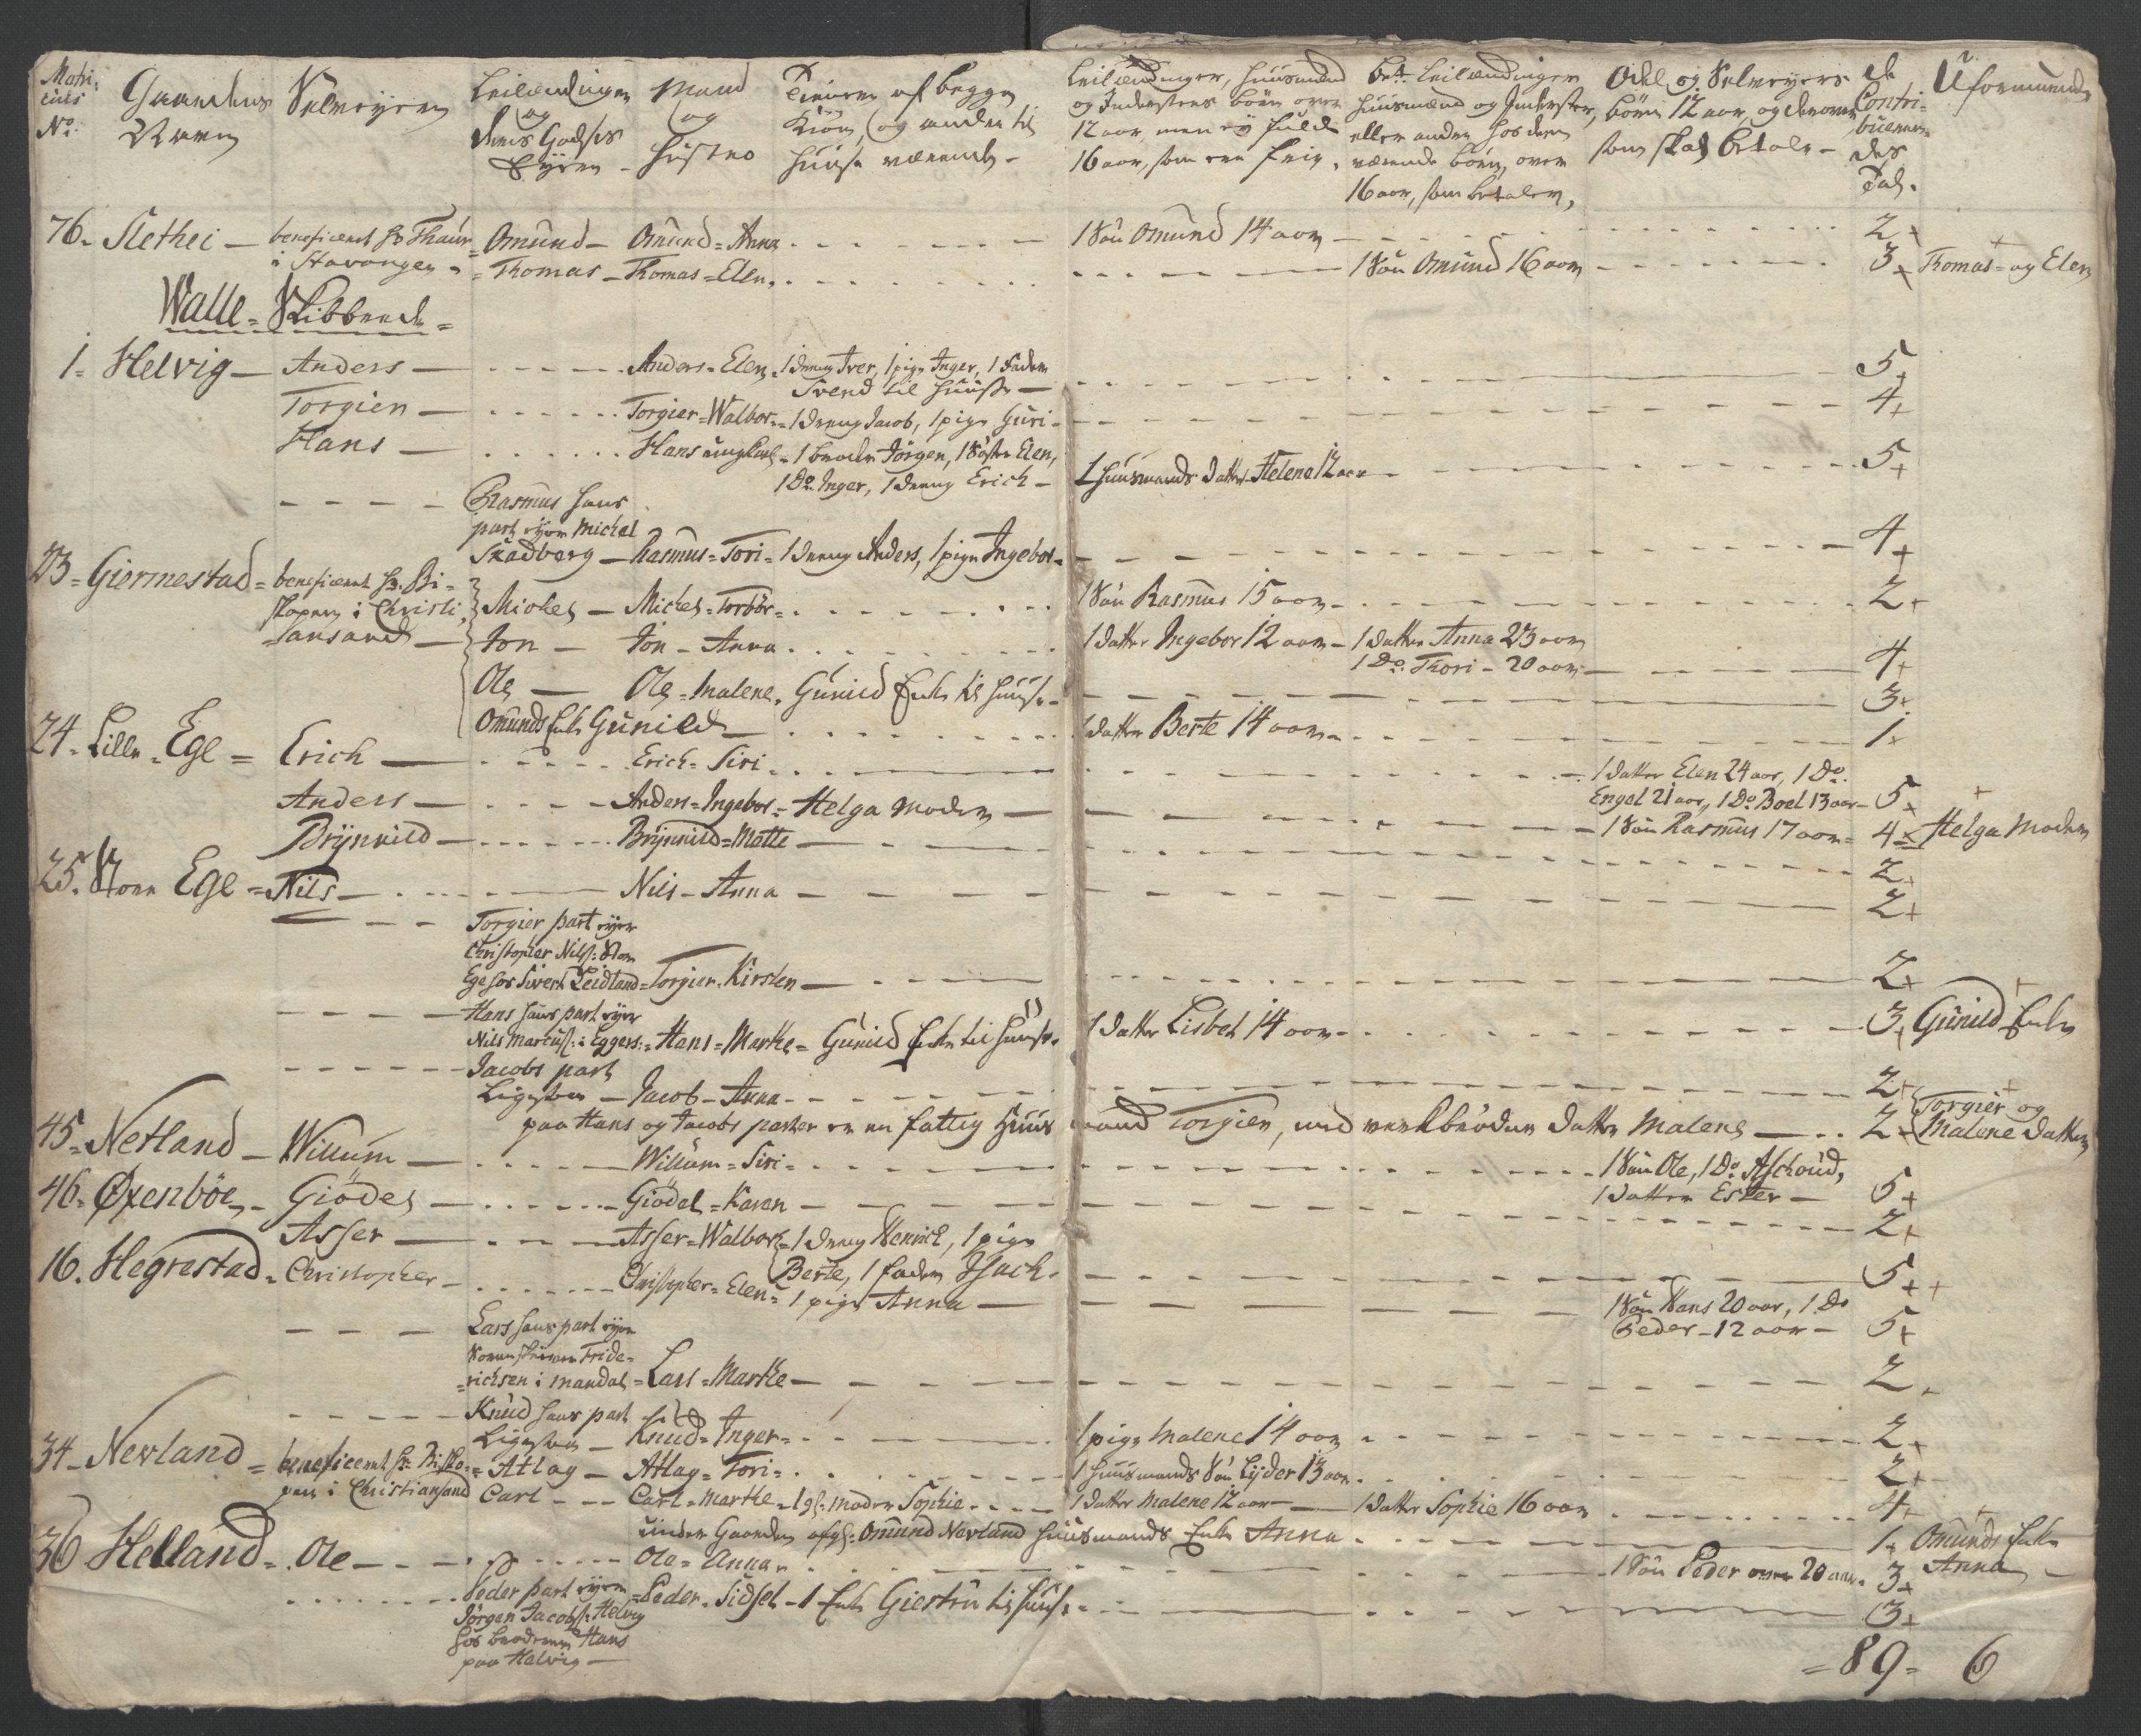 Matri-
culs
No.
Gaardens
Navn
Selveyere
Leilændinger
og
deres Godses
Eyere -
Mand
og
Hustro
Tienere af begge
Kiön, og andre til
Huuse værende -
Leilændinger, Huusmænd
og Inderstens börn over
12 aar, men ey fulde
16 aar, som ere frie,
Bete. Leilændinger
Huusmænd og Inderster,
eller andre hos dem
værende börn, over
16 aar, som betaler,
Odel og Selveyers
börn 12 aar, og derover
som skal betale -
de
Contri-
buerendes
Tal.
Uformuende
76 - Slethei - beneficeret Hr Thaur = Omund - Omund = Anna - 1 Sön Omund 14 aar - 2 +
i Stavanger = Thomas - Thomas = Elen - 1 Sön Omund 16 aar - 3 + Thomas = og Elen
Walle = Skibbrede =
1 = Helvig - Anders - Anders = Elen = 1 dreng Iver, 1 pige Inger, 1 Fader
Svend til Huuse - 5 +
Torgier - Torgier = Walbor = 1 dreng Jacob, 1 pige Guri - 4 +
Hans - Hans ungkarl = 1 broder Jörgen, 1 Söster Elen,
1 Do. Inger, 1 dreng Erich - 1 Huusmands datter Helene 12 aar - 5 +
Rasmus hans
part eyer Michel
Skadberg - Rasmus = Tori = 1 dreng Anders, 1 pige Ingebor - 4 +
23 = Giermestad = beneficeret Hr. Bi-
skopen i Christi-
ansand -
Michel - Michel = Torbör - 1 Sön Rasmus 15 aar - 2 +
Jon - Jon - Anna - 1 datter Ingebor 12 aar - 1 datter Anna 23 aar
1 Do. Thori - 20 aar - 4 +
Ole - Ole = Malene, Gunild Enke til Huuse - 3 +
Omunds Enke Gunild - 1 datter Berte 14 aar - 1 +
24 - Lille = Ege = Erich - Erich - Siri - 1 datter Elen 24 aar, 1 Do.
Engel 21 aar, 1 Do. Boel 13 aar - 5 +
Anders - Anders = Ingebor = Helga Moder - 1 Sön Rasmus 17 aar = 4 + Helga Moder
Brynnild - Brynnild = Mette - 2 +
25. Store Ege = Nils - Nils - Anna - 2 +
Torgier part eyer
Christopher Nilss: Store
Ege hos Sivert Leidland = Torgier - Kirsten - 2 +
Hans hans part eyer
Nils Marcuss: i Eggers: = Hans = Marthe = Gunild Enke til Huuse - 1 datter Lisbet 14 aar - 3 + Gunild Enke
Jacobs part
Ligesaa - Jacob - Anna - 2 +
paa Hans og Jacobs parter er en fattig Huusmand Torgier, med datter Malene - 2 + Torgier og
Malene datter
45 = Netland - Willum - Willum = Siri - 1 Sön Ole, 1 Do Aschoud,
1 datter Ester - 5 +
46. Øxenböe - Giödel - Giödel = Karen - 2 +
Asser - Asser = Walbor = 1 dreng Henrick, 1 pige
Berte, 1 fader Isach - 5 + +
16. Hegrestad = Christopher - Christopher = Elen = 1 pige Anna - 1 Sön Hans 20 aar, 1 Do
Peder - 12 aar - 5 +
Lars hans part eyer
Fride-
richsen i Mandal = Lars = Marthe - 2 +
Knud hans part
Ligesaa - Knud = Inger - 1 pige Malene 14 aar - 2 +
34 - Nevland = beneficeret Hr. Bisko-
pen i Christiansand
= Atlag - Atlag = Tori - 1 Huusmands Sön Lyder 13 aar - 2 +
Carl - Carl = Marthe = 1 gl: Moder Sophie - 1 datter Malene 12 aar - 1 datter Sophie 16 aar - 4 +
under Gaarden afg: Omund Nevland Huusmands Enke Anna - 1 + Omunds Enke
Anna
36 Helland = Ole - Ole = Anna - 1 Sön Peder over 20 aar - 3 +
Peder part eyer = Peder = Sidsel - 1 Enke Giestru til Huuse - 3 +
Jörgen Jacobss: Helvig
hos broderen Hans
paa Helvig -
= 89 = 6